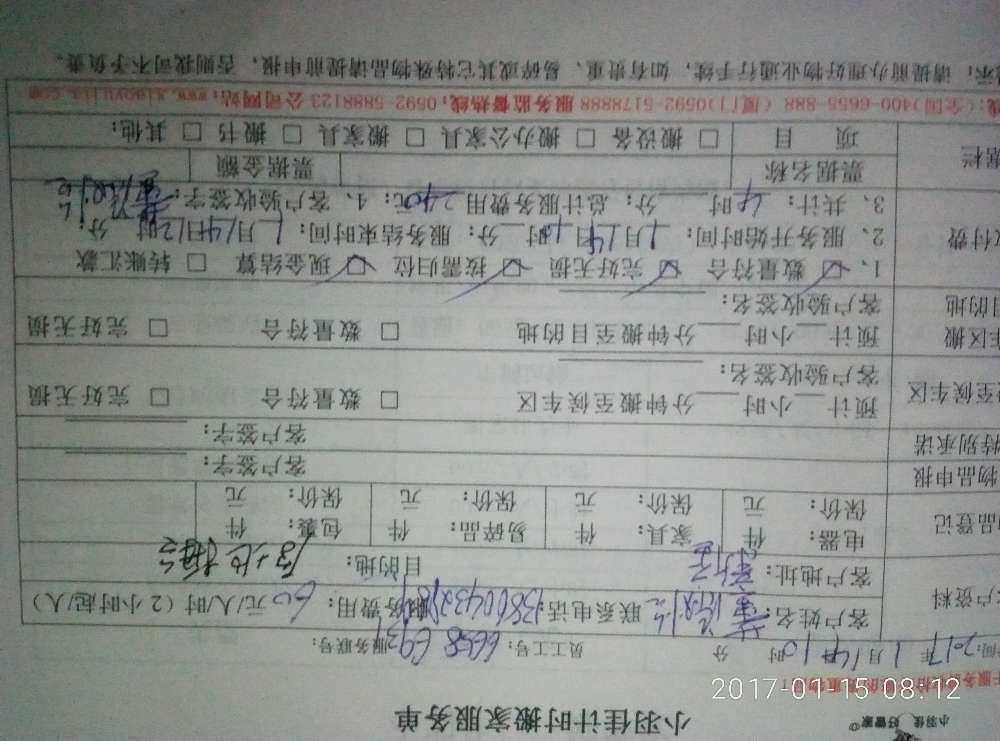 小羽佳 好管家
小羽佳计时搬家服务单
2017年1月14日10时 分 员工工号:6658 服务联号:
客户姓名: 联系电话: 服务费用:60元/人/时(2小时起/人)
客户地址: 目的地:
品登记 电器: 件 家具: 件 易碎品: 件 包裹: 件
保价: 元 保价: 元 保价: 元 保价: 元
物品申报 客户签字:
特别承诺 客户签字:
至候车区 预计 小时 分钟搬至候车区 □ 数量符合 □ 完好无损
客户验收签名:
车区搬 预计 小时 分钟搬至目的地 □ 数量符合 □ 完好无损
目的地 客户验收签名:
1、☑ 数量符合 ☑ 完好无损 ☑ 按需归位 ☑ 现金结算 □ 转账汇款
付费 2、服务开始时间:1月14日10时 分;服务结束时间:1月14日12时 分;
3、共计:4时 分;总计服务费用240元;4、客户验收签字:
据栏 票据名称 票据金额
项 目 □ 搬设备 □ 搬办公家具 □ 搬家具 □ 搬书 □ 其他:
线:(全国)400-6655-888 (厦门)0592-5178888 服务监督热线:0592-5888123 公司网站:www.xiaoyujia.com
示:请提前办理好物业通行手续,如有贵重、易碎或其它特殊物品请提前申报,否则我司不予负责。
2017-01-15 08:12